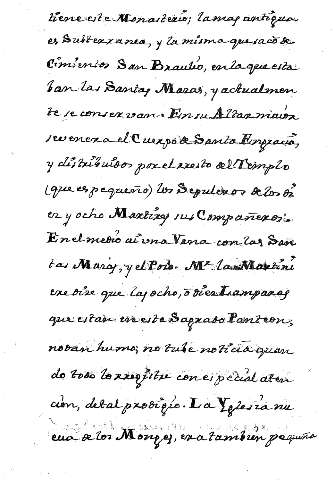 tiene este Monasterio; la mas antigua
es Subterranea, y la misma que sacò de
Cimientos San Braulio, en la que esta
ban las Santas Masas, y actualmen
te se conservan. En su Altar maior
se venera el Cuerpo de Santa Engracia,
y distribuidos por el rresto del Templo
(que es pequeño) los Sepulcros de los di
ez y ocho Martires sus Compañeros.
En el medio ai una Vena con las San
tas Masas, y el Pob. Mro. la Martini
ere dice que las ocho, o diez Lamparas
que estan en este Sagrado Panteon,
no dan humo; no tube noticia quan
do todo lo rregistre con especial aten
cion, de tal prodigio. La Yglesia nu
eva de los Monges, era tambien pequeña